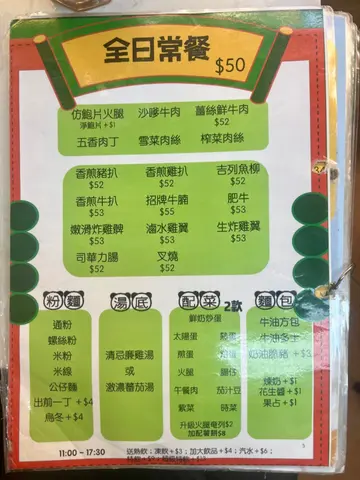 全日常餐 $50
仿鮑片火腿 沙嗲牛肉 薑絲鮮牛肉
淨鮑片+$1 $52
五香肉丁 雪菜肉絲 榨菜肉絲
香煎豬扒 香煎雞扒 吉列魚柳
$52 $52 $52
香煎牛扒 招牌牛腩 肥牛
$53 $55 $53
嫩滑炸雞髀 滷水雞翼 生炸雞翼
$53 $53 $53
司華力腸 叉燒
$52 $52
粉麵 湯底 配菜 2款 麵包
通粉 鮮奶炒蛋 牛油方包
螺絲粉 太陽蛋 牛油多士
米粉 清忌廉雞湯 煎蛋 奶油脆豬 +$3
米線 或 火腿 腸仔 煉奶+$1
公仔麵 激濃蕃茄湯 午餐肉 茄汁豆 花生醬+$1
出前一丁 +$4 紫菜 時菜 果占+$1
烏冬+$4 升級火腿奄列$2
加配薯餅$8
11:00 ~ 17:30 送熱飲；凍飲+$3；加大飲品+$4；汽水+$6；
5